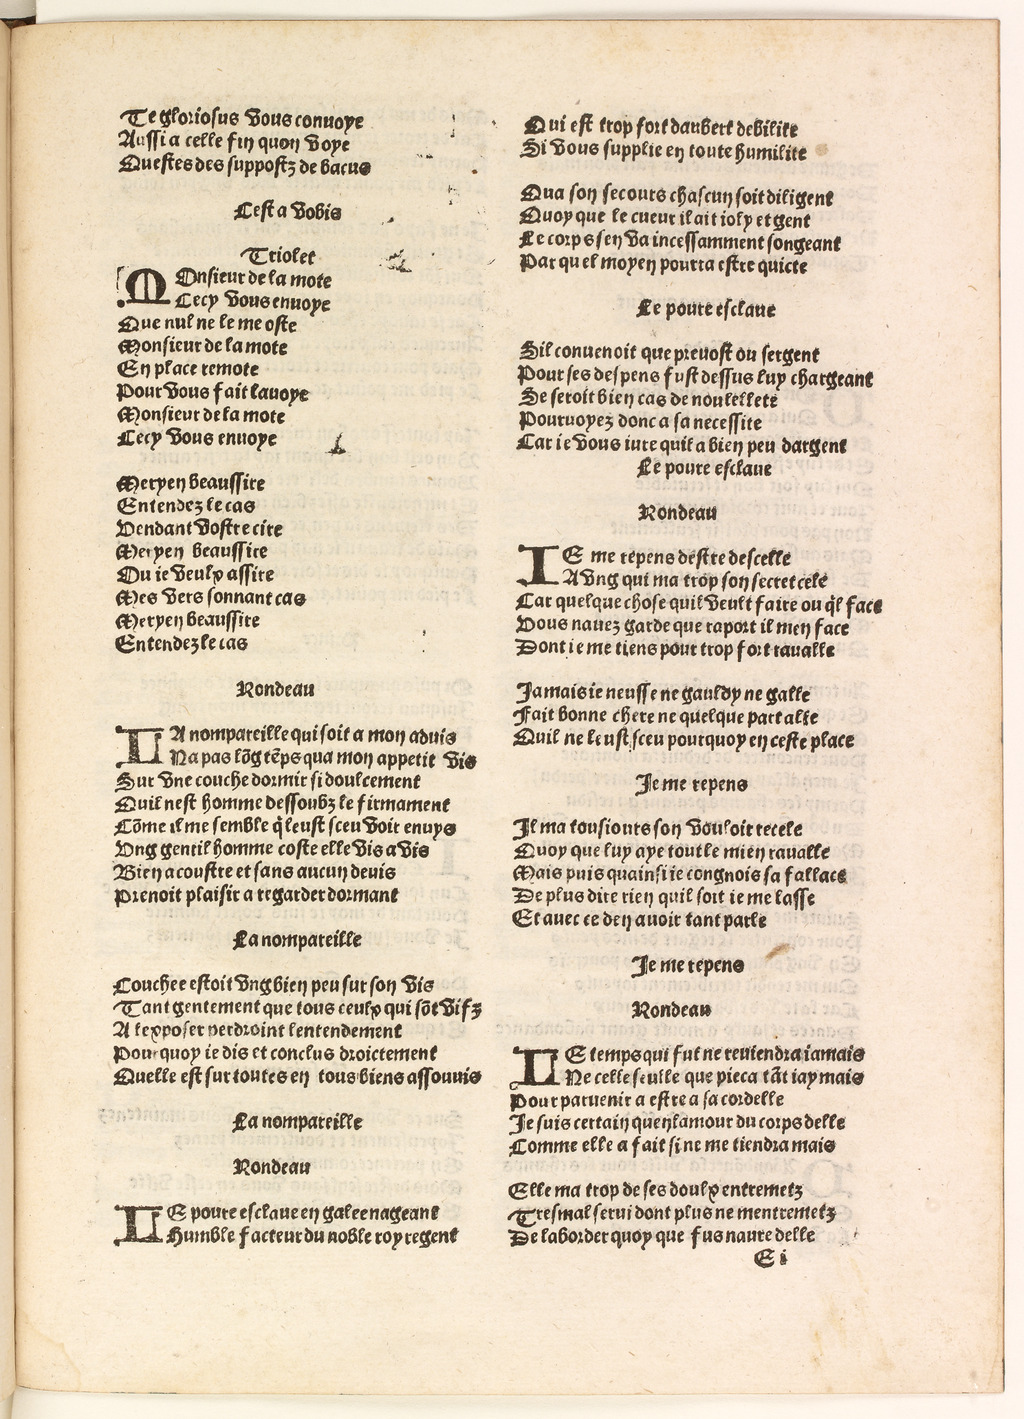 Te gloriosus vous conuoye
Aussi a celle fin quon voye
Questes des suppostz de bacus
Cest a vobis
Triolet
MOnsieur de la mote
Cecy vous enuoye
Que nul ne le me oste
Monsieur de la mote
En place remote
Pour vous fait lauoye
Monsieur de la mote
Cecy vous enuoye
Meryen beaussire
Entendez le cas
Pendant vostre cire
Meryen beaussire
Ou ie veulx assire
Mes vers sonnant cas
Meryen beaussire
Entendez le cas
Rondeau
LA nompareille qui soit a mon aduis
Na pas lõg tẽps qua mon appetit vis
Sur vne couche dormir si doulcement
Quil nest homme dessoubz le firmament
Cõme il me semble q̃ leust sceu voir enuys
Vng gentil homme coste elle vis a vis
Bien acoustre et sans aucun deuis
Prenoit plaisir a regarder dormant
La nompareille
Couchee estoit vng bien peu sur son vis
Tant gentement que tous ceulx qui sõt vifz
A lexposer perdroint lentendement
Pourquoy ie dis et conclus droictement
Quelle est sur toutes en tous biens assouuis
La nompareille
Rondeau
LE poure esclaue en galee nageant
Humble facteur du noble roy regent
Qui est trop fort daubert debilite
Si vous supplie en toute humilite
Qua son secours chascun soit diligent
Quoy que le cueur il ait ioly et gent
Le corps sen va incessamment songeant
Par quel moyen pourra estre quicte
Le poure esclaue
Sil conuenoit que preuost ou sergent
Pour ses despens fust dessus luy chargeant
Se seroit bien cas de nouuellete
Pouruoyez donc a sa necessite
Car ie vous iure quil a bien peu dargent
Le poure esclaue
Rondeau
IE me repens destre descelle
A vng qui ma trop son secret cele
Car quelque chose quil veult faire ou q̃l face
Vous nauez garde que raport il men face
Dont ie me tiens pour trop fort raualle
Jamais ie neusse ne gaudy ne galle
Fait bonne chere ne quelque part alle
Quil ne leust sceu pourquoy en ceste place
Je me repens
Il ma tousiours son vouloir recele
Quoy que luy aye tout le mien raualle
Mais puis quainsi ie congnois sa fallace
De plus dire rien quil soit ie me lasse
Et auec ce den auoir tant parle
Je me repens
Rondeau
LE temps qui fut ne reuiendra iamais
Ne celle seulle que pieca tãt iaymais
Pour paruenir a estre a sa cordelle
Je suis certain quen lamour du corps delle
Comme elle a fait si ne me tiendra mais
Elle ma trop de ses doulx entremetz
Tresmal serui dont plus ne mentremetz
De laborder quoy que fus naure delle
E i